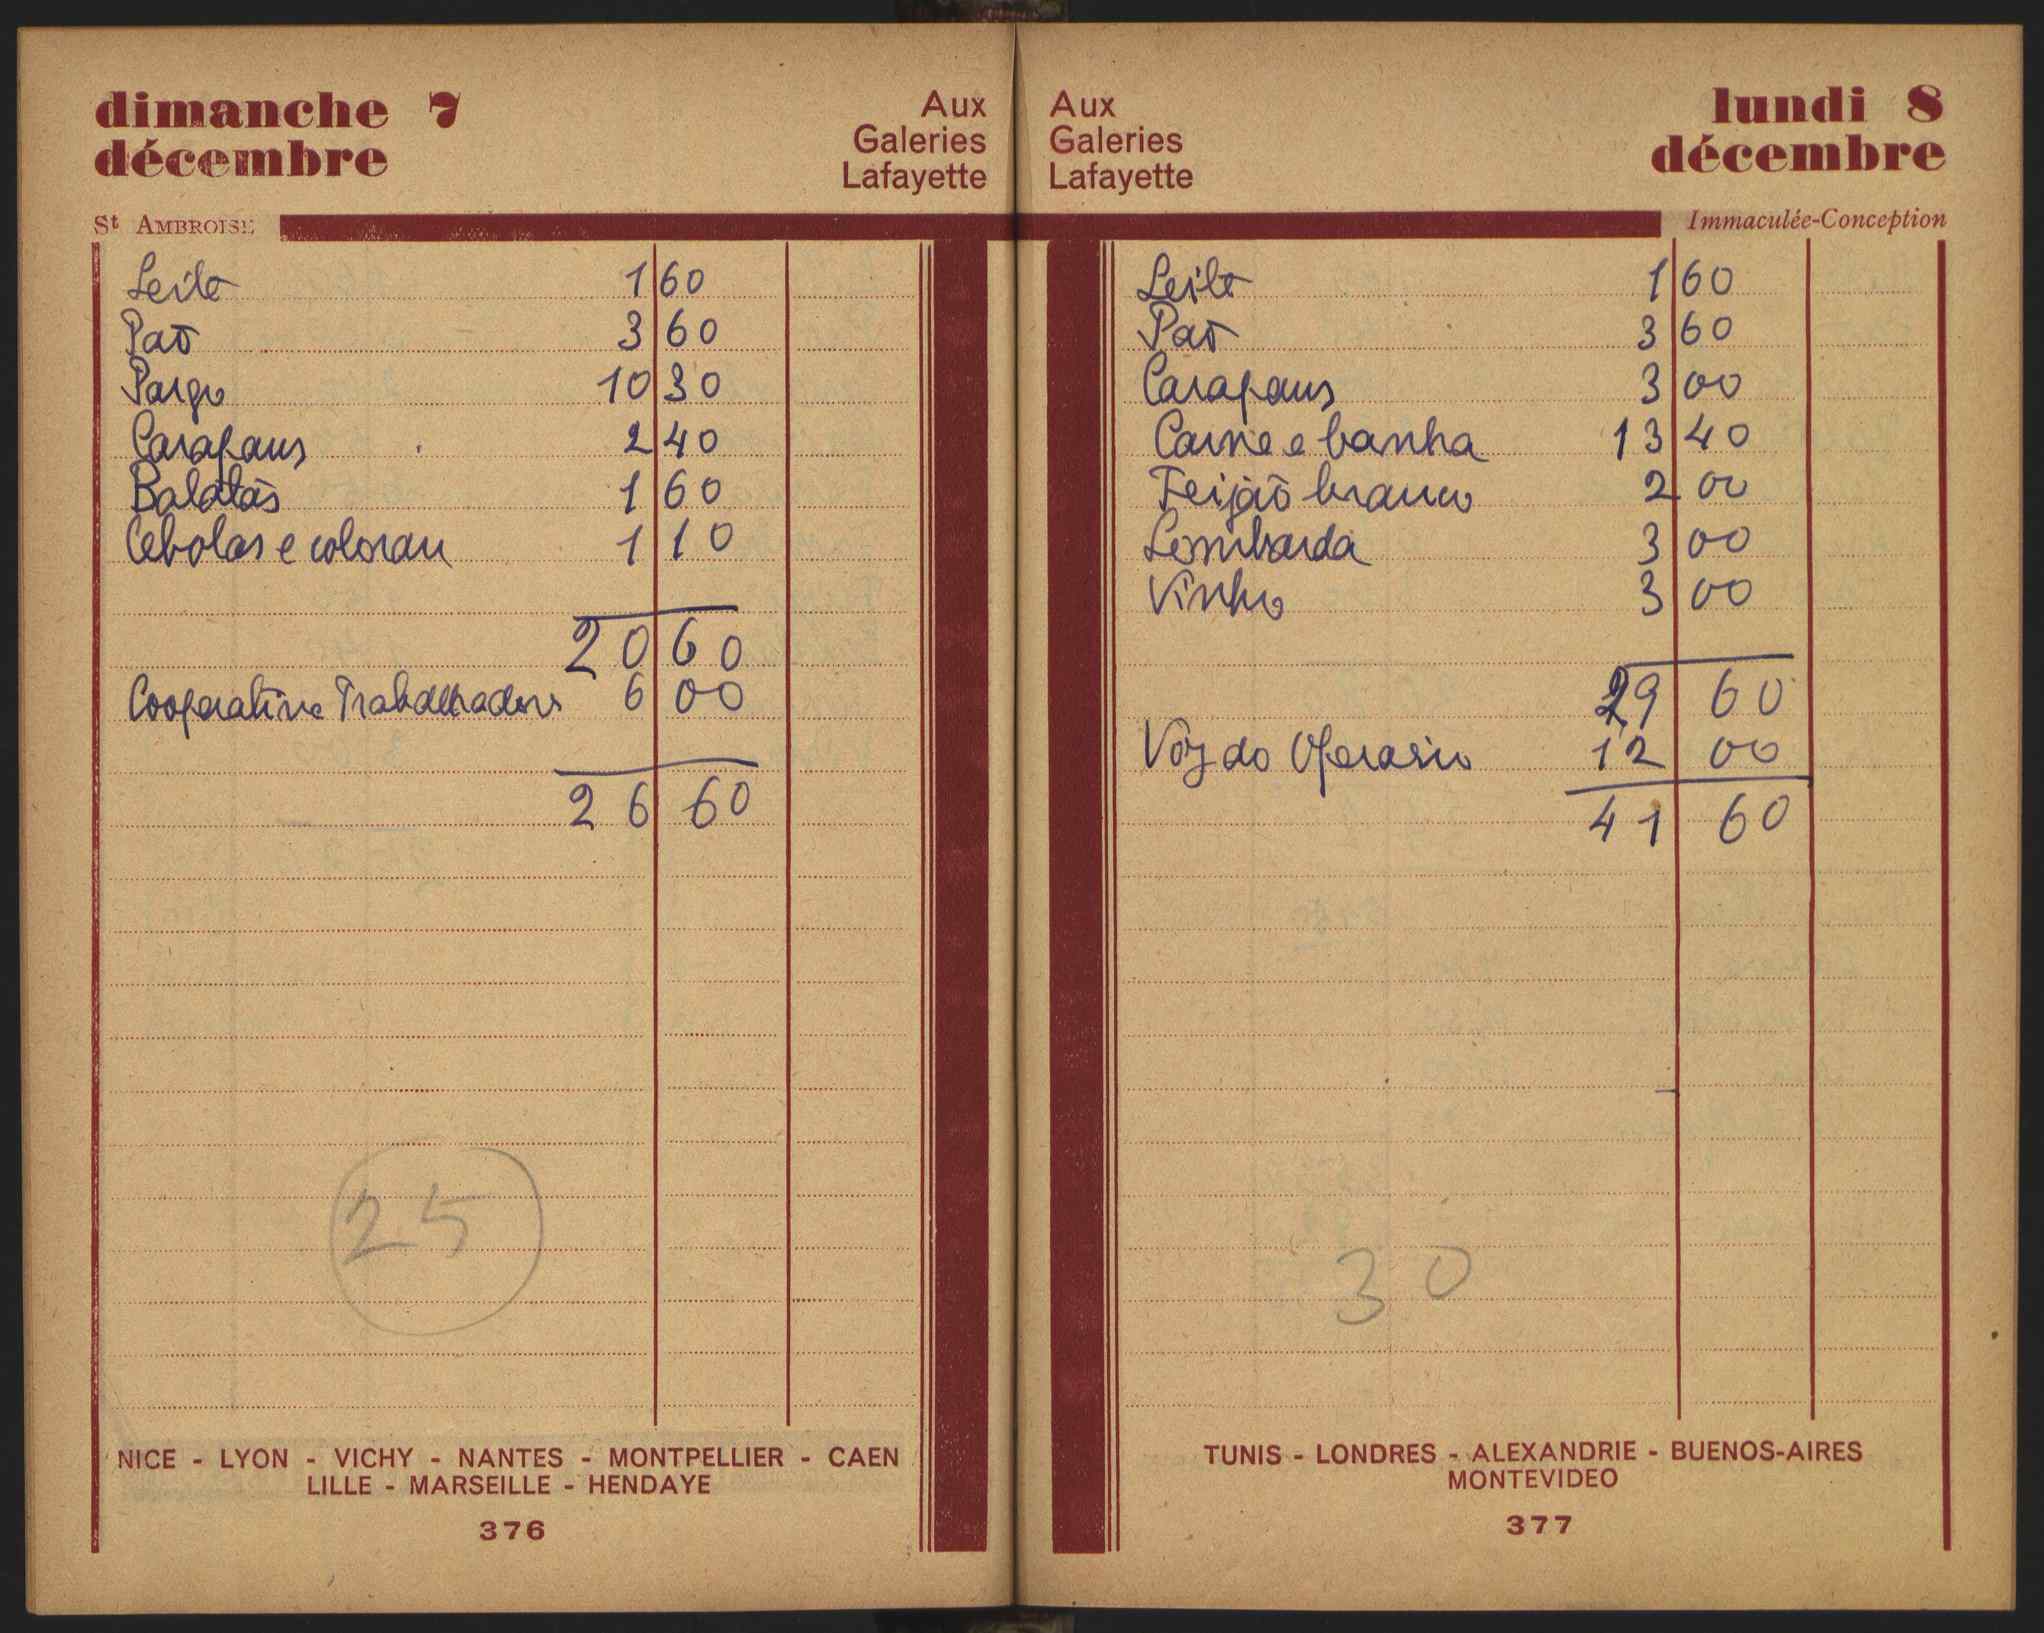 dimanche 7
décembre
Aux
Galeries
Lafayette
St AMBROISE
Leite 1 60
Pão 3 60
Pargo 10 30
Carapaus 2 40
Batatas 1 60
Cebolas e colorau 1 10
20 60
Cooperativa Trabalhadores 6 00
26 60
25
NICE - LYON - VICHY - NANTES - MONTPELLIER - CAEN
LILLE - MARSEILLE - HENDAYE
376
Aux
Galeries
Lafayette
lundi 8
décembre
Immaculée-Conception
Leite 1 60
Pão 3 60
Carapaus 3 00
Carne e banha 13 40
Feijão branco 2 00
Lombarda 3 00
Vinho 3 00
29 60
Voz do Operario 12 00
41 60
30
TUNIS - LONDRES - ALEXANDRIE - BUENOS-AIRES
MONTEVIDEO
377